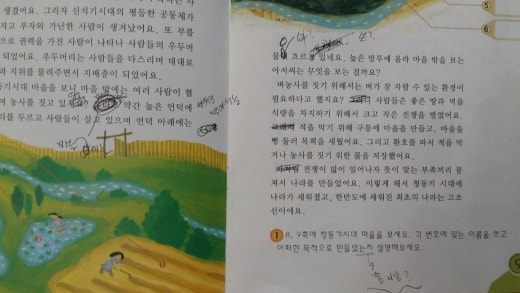 렀어요. 그러자 신석기시대의 평등한 공동체가
지고 부자와 가난한 사람이 생겨났어요. 또 부를
으로 권력을 가진 사람이 나타나 사람들의 우두머
되었어요. 우두머리는 사람들을 다스리며 대대로
과 지위를 물려주면서 지배층이 되었어요.
동기시대 마을을 보니 마을 밖에는 여러 사람이 협
여 농사를 짓고 있
약간 높은 언덕에
리를 두르고 사람들이 살고 있으며 언덕 아래에는
흐르고 있네요. 높은 망루에 올라 마을 밖을 보는
아저씨는 무엇을 보는 걸까요?
벼농사를 짓기 위해서는 벼가 잘 자랄 수 있는 환경이
필요하다고 했지요? 사람들은 좋은 땅과 벽을
식량을 차지하기 위해서 크고 작은 전쟁을 벌였어요.
적을 막기 위해 구릉에 마을을 만들고, 마을을
빙 둘러 목책을 세웠어요. 그리고 환호를 파서 적을 막
거나 농사를 짓기 위한 물을 저장했어요.
전쟁이 많이 일어나자 뜻이 맞는 부족끼리 뭉
쳐서 나라를 만들었어요. 이렇게 해서 청동기 시대에
나라가 세워졌고, 한반도에 세워진 최초의 나라는 고조
선이에요.
1 8, 9쪽에 청동기시대 마을을 보세요. 각 번호에 맞는 이름을 쓰고
어떠한 목적으로 만들었는지 설명해보세요.
5
6